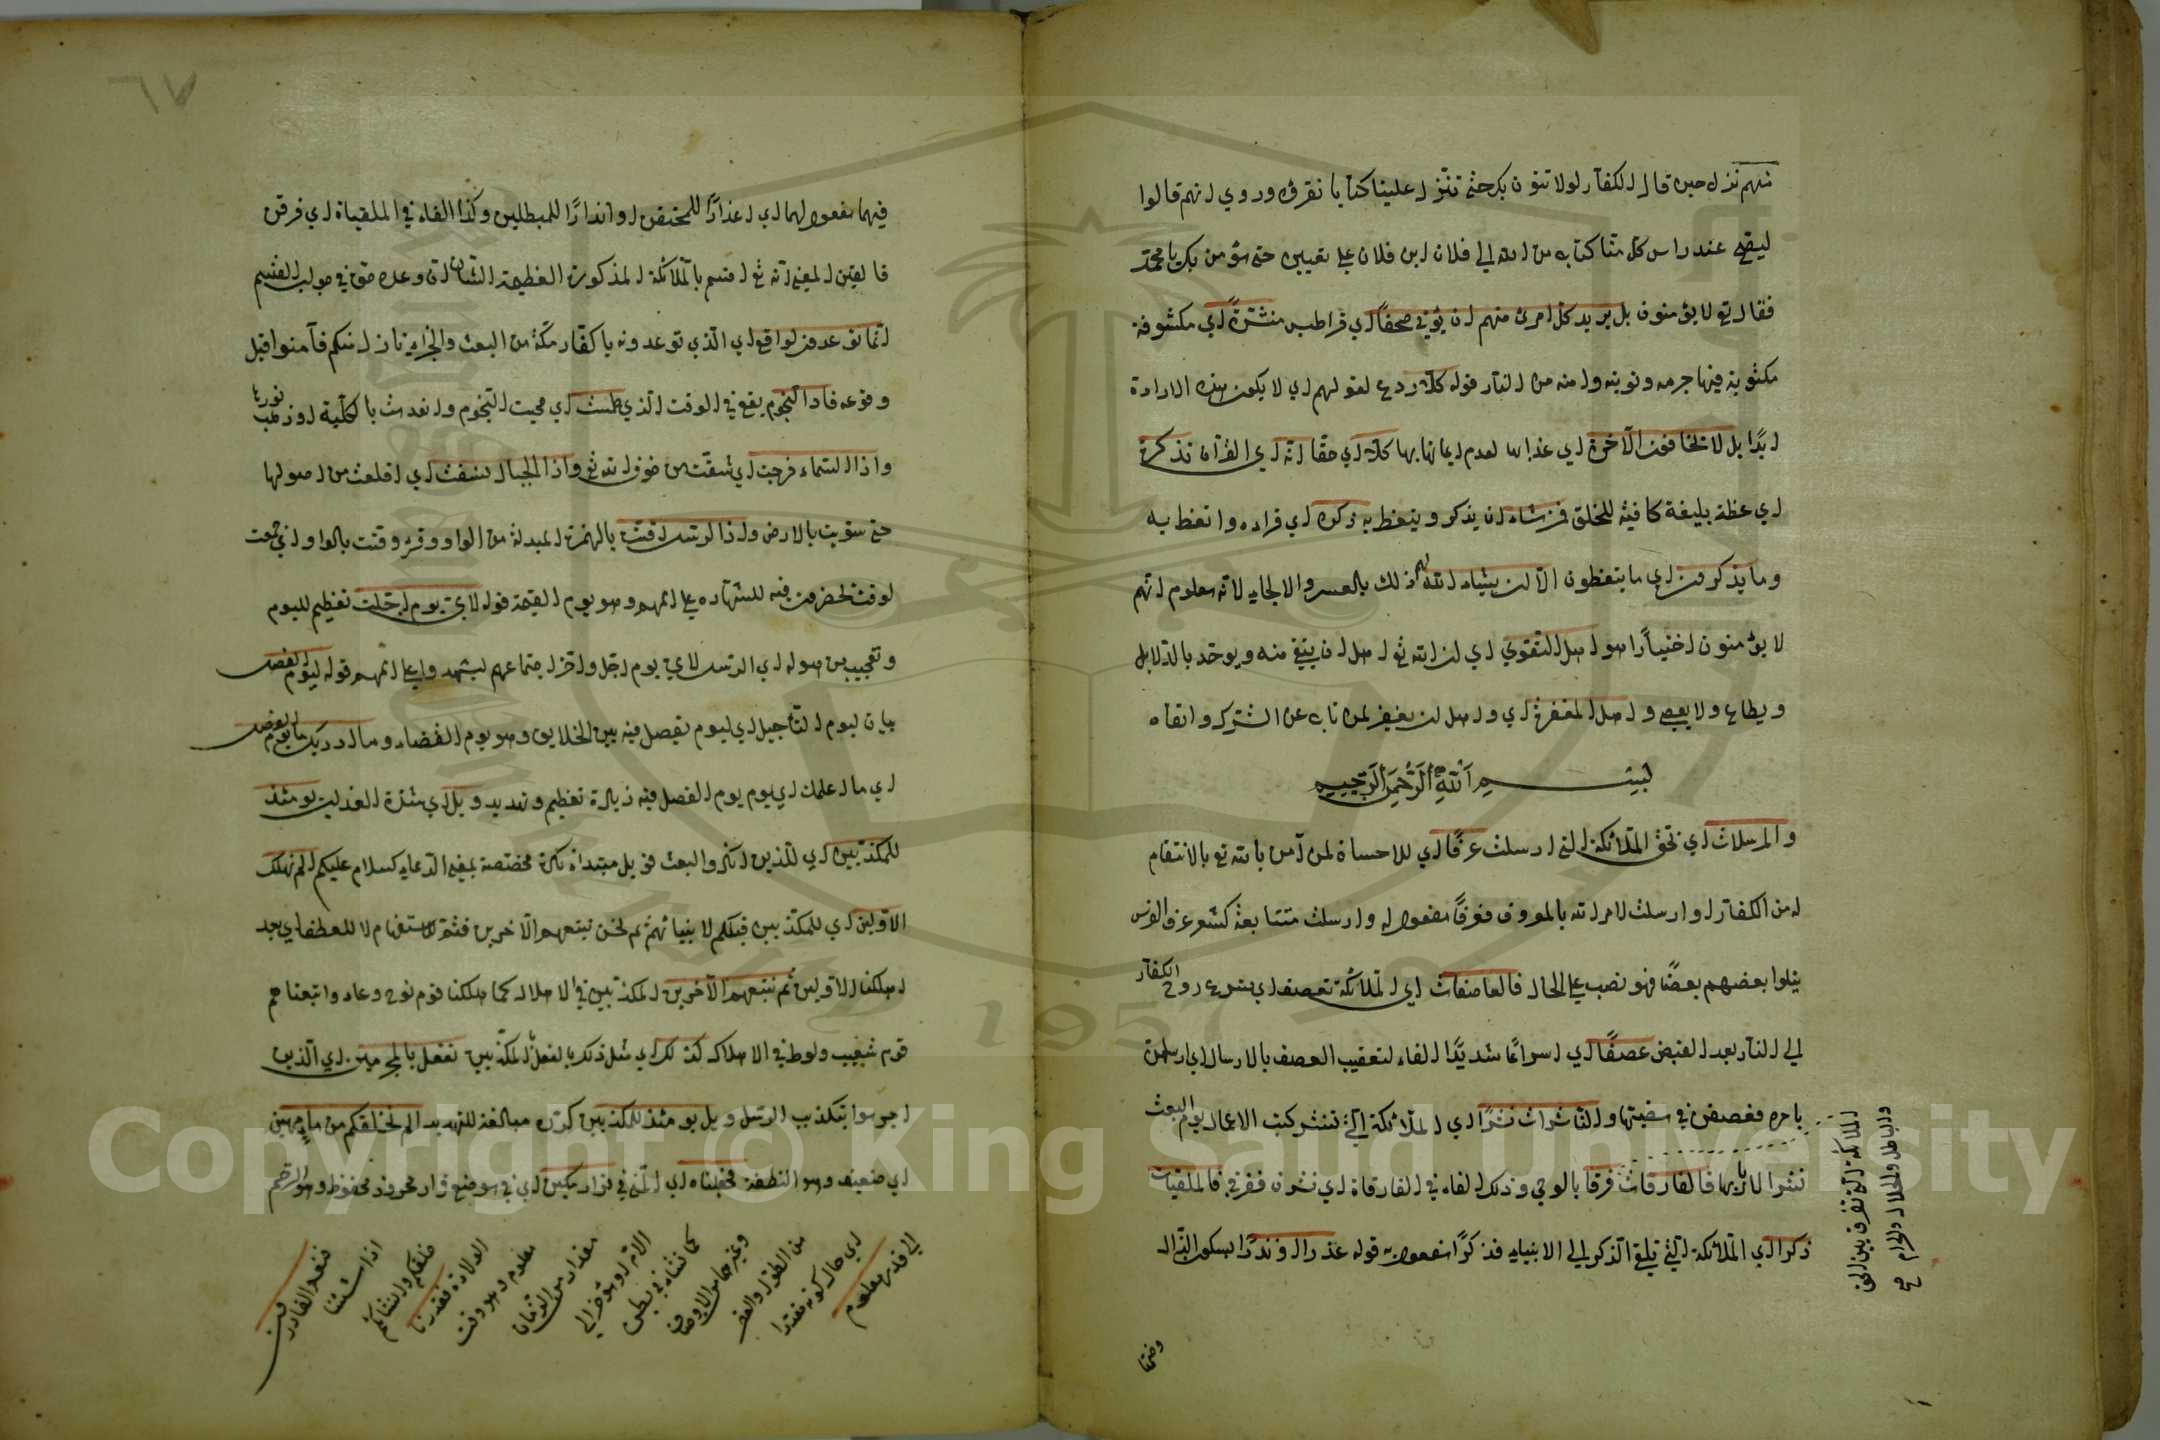 منهم نزل حين قال الكفار لولا تنون بك حتى تنزل علينا كتابا نقرؤه وروي انهم قالوا
ليصبح عند راس كل منا كتاب من الله الى فلان ابن فلان على تعيين حتى نؤمن بك يا محمد
فقال تع لا يؤمنون بل يريد كل امرئ منهم ان يؤتى صحفا اي قراطيس منشرة اي مكشوفة
مكتوبة فيها جرمه وتوبته وامنه من النار قوله كلا ردع لقولهم اي لا يكون هذه الارادة
ابدا بل لا يخافون الآخرة اي عذابها لعدم ايمانهم بها كلا اي حقا انه اي القرآن تذكرة
اي عظة بليغة كافية للخلق فمن شاء ان يذكر ويتعظ به ذكره اي قراءه واتعظ به
وما يذكرون اي ما يتعظون الا ان يشاء الله لهم ذلك بالعسر والالجاء لانه معلوم انهم
لا يؤمنون اختيارا هو اهل التقوى اي ان الله تع اهل ان يتقى منه ويوحد بالدلايل
ويطاع ولا يعصى واهل المغفرة اي واهل ان يغفر لمن تاب عن الشرك واتقاه
بسم الله الرحمن الرحيم
والمرسلات اي بحق الملائكة التي ارسلت عرفا اي للاحسان لمن آمن بالله تع بالانتقام
له من الكفار او ارسلت لامر الله بالمعروف فعرفا مفعول له وارسلت متتابعة كشعر عرف الفرس
يتلوا بعضهم بعضا فهو نصب على الحال فالعاصفات اي الملائكة تعصف اي يسرع روح الكفار
الى النار بعد القبض عصفا اي اسراعا شديدا الفاء لتعقيب العصف بالارسال اي ارسلهن
بامره فعصفن في مضيها والناشرات نشرا اي الملائكة التي تنشر كتب الاعمال يوم البعث
نشرا لاربابها فالفارقات فرقا بالوحي وذكر الفاء في الفارقات اي نشرن ففرقن فالملقيات
ذكرا اي الملائكة التي تلقي الذكر الى الانبياء فذكرا مفعول به قوله عذرا او نذرا بسكون الذال
الملائكة التي تفرق بين الحق
والباطل والحلال والحرام صح
وضمها
٦٧
فيهما مفعول لهما اي اعذارا للمحقين او انذارا للمبطلين وكذا الفاء في الملقيات اي فرقن
فالقين المعنى انه تع اقسم بالملائكة المذكورة العظيمة الشان ان وعده حق في جواب القسم
انما توعدون لواقع اي الذي توعدونه يا كفار مكة من البعث والجزاء نازل بكم فآمنوا قبل
وقوعه فاذا النجوم يقع في الوقت الذي طمست اي محيت النجوم وانعدمت بالكلية او ذهب نورها
واذا السماء فرجت اي شقت من خوف الله تع واذا الجبال نسفت اي اقلعت من اصولها
حتى سويت بالارض واذا الرسل اقتت بالهمزة المبدلة من الواو وقرئ وقتت بالواو اي جمعت
لوقت يحضرون فيه للشهادة على اممهم وهو يوم القيمة قوله لاي يوم اجلت تعظيم لليوم
وتعجيب من هوله اي الرسل لاي يوم اجل واخر اجتماعهم ليشهدوا على اممهم قوله ليوم الفصل
بيان ليوم التأجيل اي ليوم يفصل فيه بين الخلايق وهو يوم القضاء وما ادريك ما يوم الفصل
اي ما اعلمك اي يوم يوم الفصل فيه زيادة تعظيم وتهديد ويل اي شدة العذاب يومئذ
للمكذبين اي للذين انكروا البعث فويل مبتداء نكرة مخصصة بمعنى الدعاء كسلام عليكم الم نهلك
الاولين اي المكذبين قبلكم لانبيائهم ثم نحن نتبعهم الآخرين فثم للاستفهام لا للعطف اي بعد
اهلكنا الاولين ثم نتبعهم الآخرين المكذبين في الاهلاك كما اهلكنا قوم نوح وعاد واتبعناهم
قوم شعيب ولوط في الاهلاك كذلك اي مثل ذلك بالفعل المكذبين نفعل بالمجرمين اي الذين
اجرموا بتكذيب الرسل ويل يومئذ للمكذبين كرره مبالغة للتهديد الم نخلقكم من ماء مهين
اي ضعيف وهو النطفة فجعلناه اي المني في قرار مكين اي في موضع قرار محروز محفوظ وهو الرحم
الى قدر معلوم
اي حال كونه مقدرا
من الطول والقصر
وغيرهما من الاوصاف
كما نشاء في بطن
الام او مؤخر الى
مقدار من الزمان
معلوم وهو وقت
الولادة فقدرنا
خلقكم وانشائكم
اذا شئنا
فنعم القادرون
Copyright © King Saud University
1957